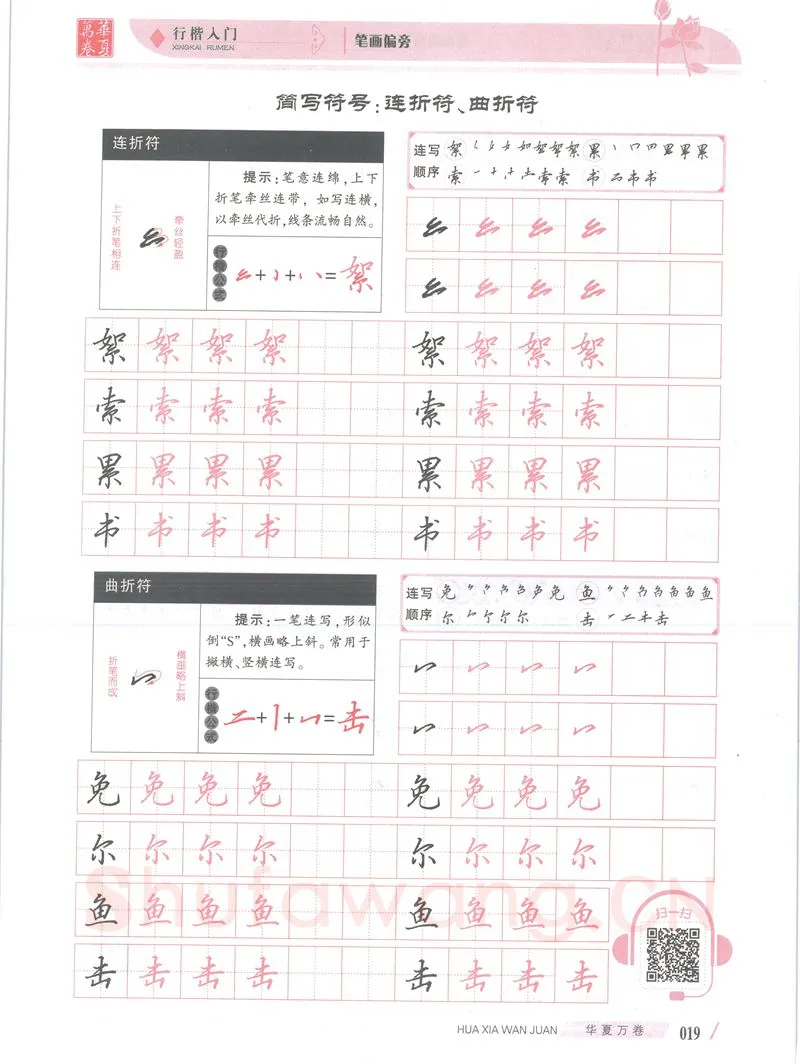 華夏
萬卷
行楷入门
XINGKAI RUMEN
笔画偏旁
简写符号：连折符、曲折符
连折符
上下折笔相连
牵丝轻盈
提示：笔意连绵，上下
折笔牵丝连带，如写连横，
以牵丝代折，线条流畅自然。
行楷公式
纟+丿+丶丶=絮
连写
顺序
絮 累
索 书
絮 絮 絮 絮 絮 絮 絮 絮
索 索 索 索 索 索 索 索
累 累 累 累 累 累 累 累
书 书 书 书 书 书 书 书
曲折符
折笔而成
横画略上斜
提示：一笔连写，形似
倒“S”，横画略上斜。常用于
撇横、竖横连写。
行楷公式
二+丨+㇀=击
连写
顺序
免 鱼
尔 击
免 免 免 免 免 免 免 免
尔 尔 尔 尔 尔 尔 尔 尔
鱼 鱼 鱼 鱼 鱼 鱼 鱼 鱼
击 击 击 击 击 击 击 击
Shufawang.CN
扫一扫
HUA XIA WAN JUAN
华夏万卷
019